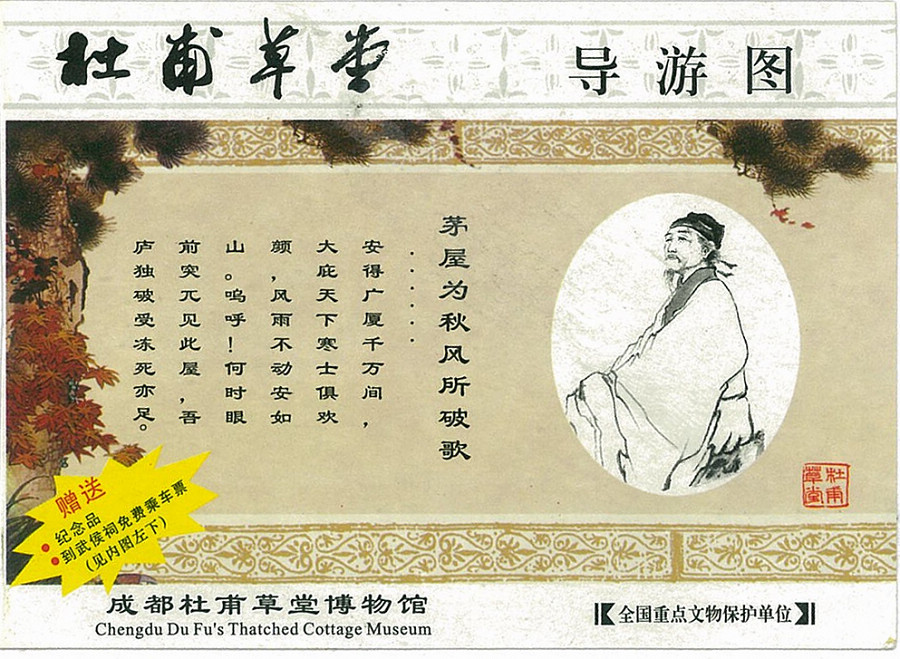 杜甫草堂 导游图
茅屋为秋风所破歌
·····
安得广厦千万间，
大庇天下寒士俱欢
颜，风雨不动安如
山。呜呼！何时眼
前突兀见此屋，吾
庐独破受冻死亦足。
杜甫
草堂
赠送
●纪念品
●到武侯祠免费乘车票
(见内图左下)
成都杜甫草堂博物馆
Chengdu Du Fu's Thatched Cottage Museum
全国重点文物保护单位